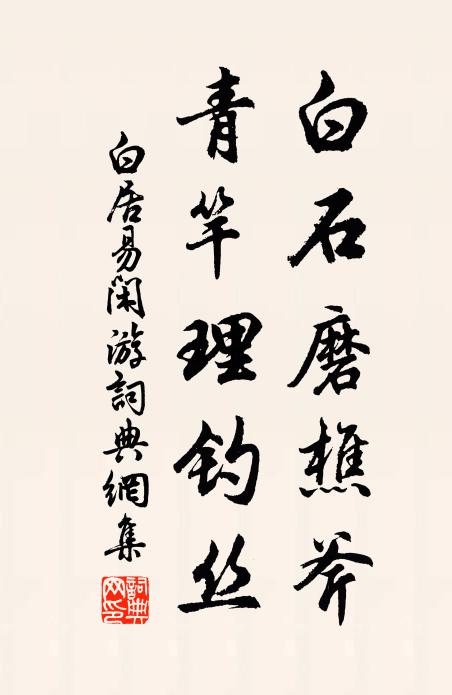 白石磨樵斧
青竿理钓丝
白居易闲游詞典網集
詞典网印